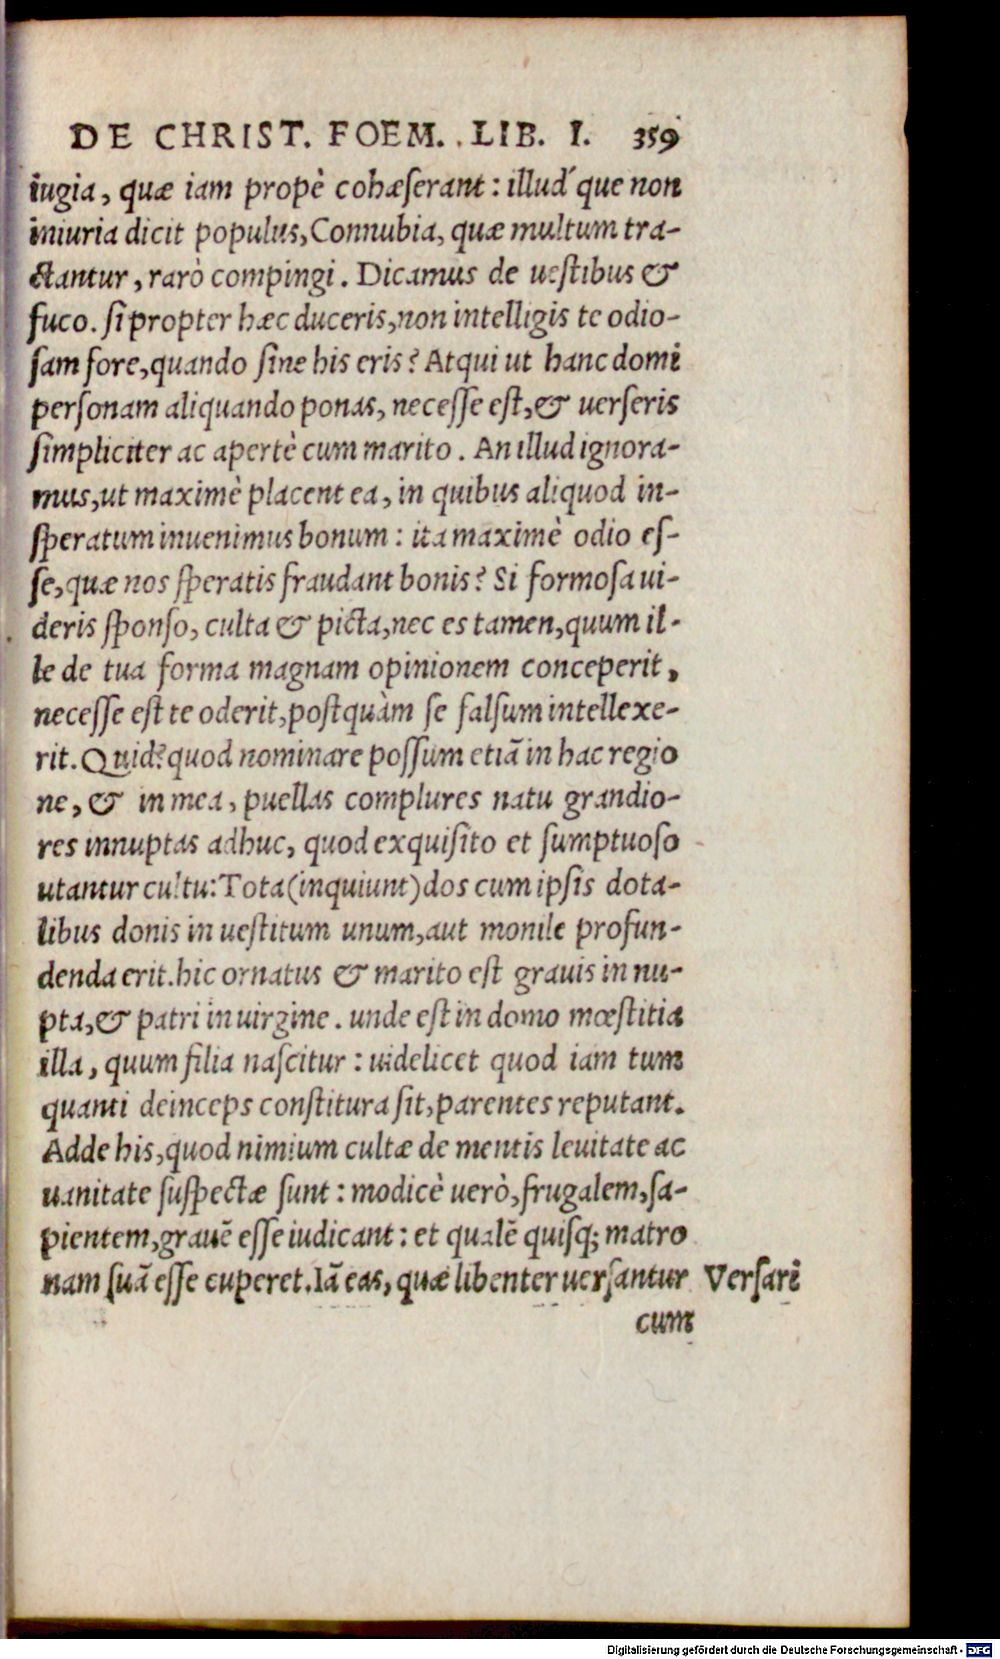 DE CHRIST. FOEM. LIB. I. 359
iugia, quæ iam propè cohæserant: illud́que non
iniuria dicit populus, Connubia, quæ multum tra-
ctantur, rarò compingi. Dicamus de uestibus &
fuco. si propter hæc duceris, non intelligis te odio-
sam fore, quando sine his eris? Atqui ut hanc domi
personam aliquando ponas, necesse est, & uerseris
simpliciter ac apertè cum marito. An illud ignora-
mus, ut maximè placent ea, in quibus aliquod in-
speratum inuenimus bonum: ita maximè odio es-
se, quæ nos speratis fraudant bonis? Si formosa ui-
deris sponso, culta & picta, nec es tamen, quum il-
le de tua forma magnam opinionem conceperit,
necesse est te oderit, postquàm se falsum intellexe-
rit. Quid? quod nominare possum etiā in hac regio
ne, & in mea, puellas complures natu grandio-
res innuptas adhuc, quod exquisito et sumptuoso
utantur cultu: Tota (inquiunt) dos cum ipsis dota-
libus donis in uestitum unum, aut monile profun-
denda erit. hic ornatus & marito est grauis in nu-
pta, & patri in uirgine. unde est in domo mœstitia
illa, quum filia nascitur: uidelicet quod iam tum
quanti deinceps constitura sit, parentes reputant.
Adde his, quod nimium cultæ de mentis leuitate ac
uanitate suspectæ sunt: modicè uerò, frugalem, sa-
pientem, grauē esse iudicant: et qualē quisq; matro
nam suā esse cuperet. Iā eas, quæ libenter uersantur Versari
cum
Digitalisierung gefördert durch die Deutsche Forschungsgemeinschaft - DFG